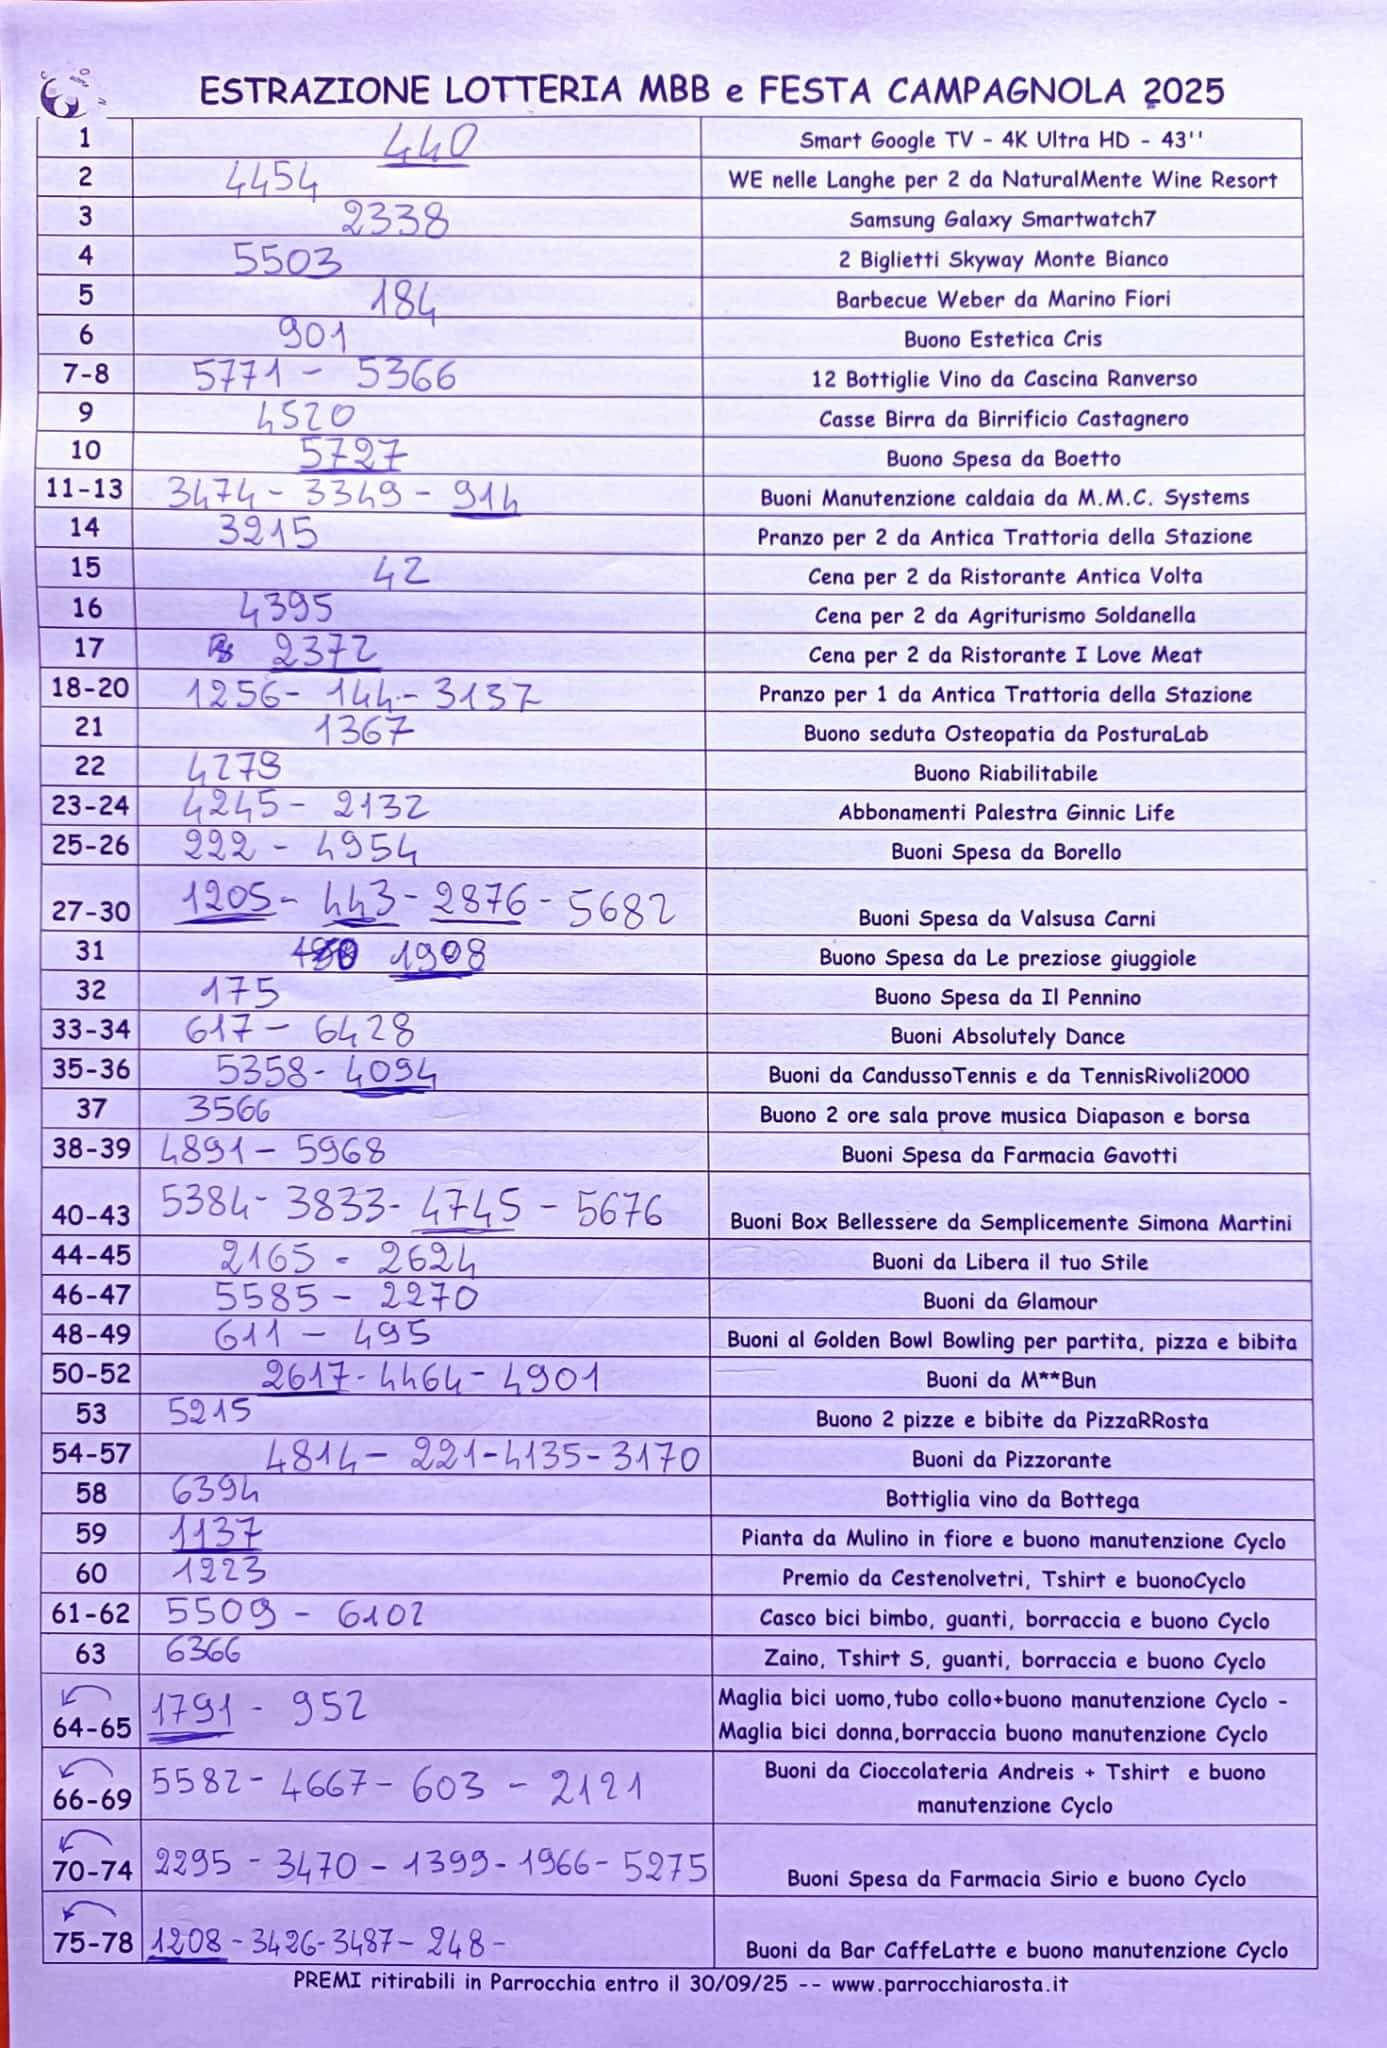 ESTRAZIONE LOTTERIA MBB e FESTA CAMPAGNOLA 2025
1 440 Smart Google TV - 4K Ultra HD - 43''
2 4454 WE nelle Langhe per 2 da NaturalMente Wine Resort
3 2338 Samsung Galaxy Smartwatch7
4 5503 2 Biglietti Skyway Monte Bianco
5 184 Barbecue Weber da Marino Fiori
6 901 Buono Estetica Cris
7-8 5771 - 5366 12 Bottiglie Vino da Cascina Ranverso
9 4520 Casse Birra da Birrificio Castagnero
10 5727 Buono Spesa da Boetto
11-13 3474 - 3349 - 914 Buoni Manutenzione caldaia da M.M.C. Systems
14 3215 Pranzo per 2 da Antica Trattoria della Stazione
15 42 Cena per 2 da Ristorante Antica Volta
16 4395 Cena per 2 da Agriturismo Soldanella
17 2372 Cena per 2 da Ristorante I Love Meat
18-20 1256 - 144 - 3137 Pranzo per 1 da Antica Trattoria della Stazione
21 1367 Buono seduta Osteopatia da PosturaLab
22 4279 Buono Riabilitabile
23-24 4245 - 2132 Abbonamenti Palestra Ginnic Life
25-26 222 - 4954 Buoni Spesa da Borello
27-30 1205 - 443 - 2876 - 5682 Buoni Spesa da Valsusa Carni
31 1908 Buono Spesa da Le preziose giuggiole
32 175 Buono Spesa da Il Pennino
33-34 617 - 6428 Buoni Absolutely Dance
35-36 5358 - 4094 Buoni da CandussoTennis e da TennisRivoli2000
37 3566 Buono 2 ore sala prove musica Diapason e borsa
38-39 4891 - 5968 Buoni Spesa da Farmacia Gavotti
40-43 5384 - 3833 - 4745 - 5676 Buoni Box Bellessere da Semplicemente Simona Martini
44-45 2165 - 2624 Buoni da Libera il tuo Stile
46-47 5585 - 2270 Buoni da Glamour
48-49 611 - 495 Buoni al Golden Bowl Bowling per partita, pizza e bibita
50-52 2617 - 4464 - 4901 Buoni da M**Bun
53 5215 Buono 2 pizze e bibite da PizzaRRosta
54-57 4814 - 221 - 4135 - 3170 Buoni da Pizzorante
58 6394 Bottiglia vino da Bottega
59 1137 Pianta da Mulino in fiore e buono manutenzione Cyclo
60 1223 Premio da Cestenolvetri, Tshirt e buonoCyclo
61-62 5509 - 6102 Casco bici bimbo, guanti, borraccia e buono Cyclo
63 6366 Zaino, Tshirt S, guanti, borraccia e buono Cyclo
64-65 1791 - 952 Maglia bici uomo,tubo collo+buono manutenzione Cyclo -
Maglia bici donna,borraccia buono manutenzione Cyclo
66-69 5582 - 4667 - 603 - 2121 Buoni da Cioccolateria Andreis + Tshirt e buono
manutenzione Cyclo
70-74 2295 - 3470 - 1399 - 1966 - 5275 Buoni Spesa da Farmacia Sirio e buono Cyclo
75-78 1208 - 3426 - 3487 - 248 - Buoni da Bar CaffeLatte e buono manutenzione Cyclo
PREMI ritirabili in Parrocchia entro il 30/09/25 -- www.parrocchiarosta.it